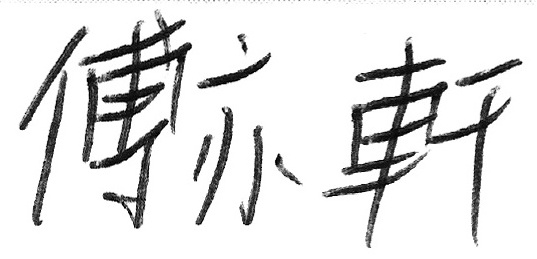 傅亦軒